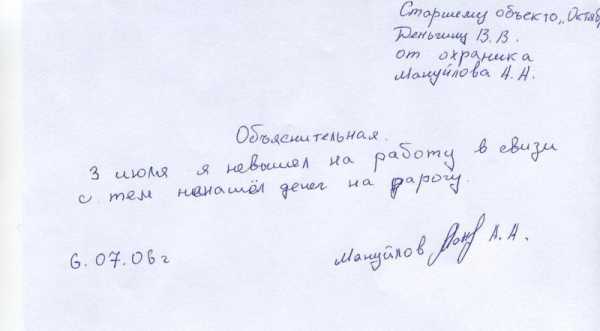 Старшему объекто „Октяб
Деньгину В.В.
от охраника
Мануйлова А.А.
Объяснительная.
3 июля я невышел на работу в свизи
с тем ненашёл денег на дарогу.
6.07.06г
Мануйлов А.А.